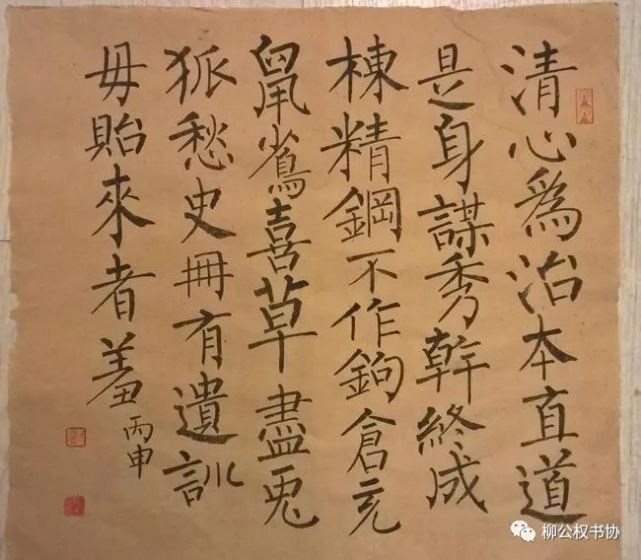 清心為治本直道
是身謀秀幹終成
棟精鋼不作鉤倉充
鼠雀喜草盡兎
狐愁史冊有遺訓
毋貽來者羞
丙申
柳公权书协